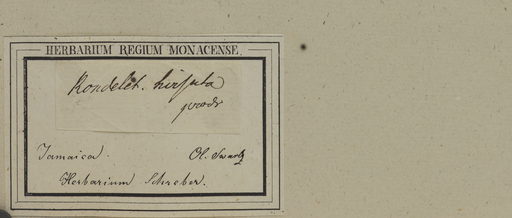 HERBARIUM REGIUM MONACENSE.
Rondelet. hirsuta
Jamaica. Ol. Swartz
Herbarium Schreber.